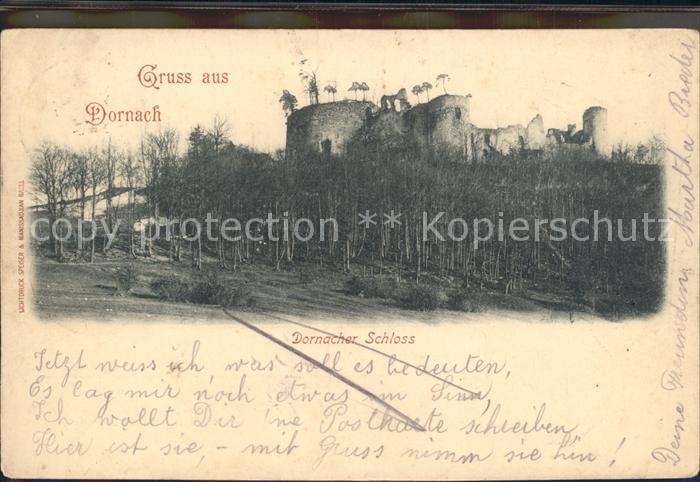 Gruss aus
Dornach
LICHTDRUCK SPEISER & MANGSARJAN BASEL
copy protection ** Kopierschutz
Dornacher Schloss
Jetzt weiss ich was soll es bedeuten,
Es lag mir noch etwas im Sinn,
Ich wollt Dir 'ne Postkarte schreiben
Hier ist sie, – mit Gruss nimm sie hin!
Deine Freundin Martha